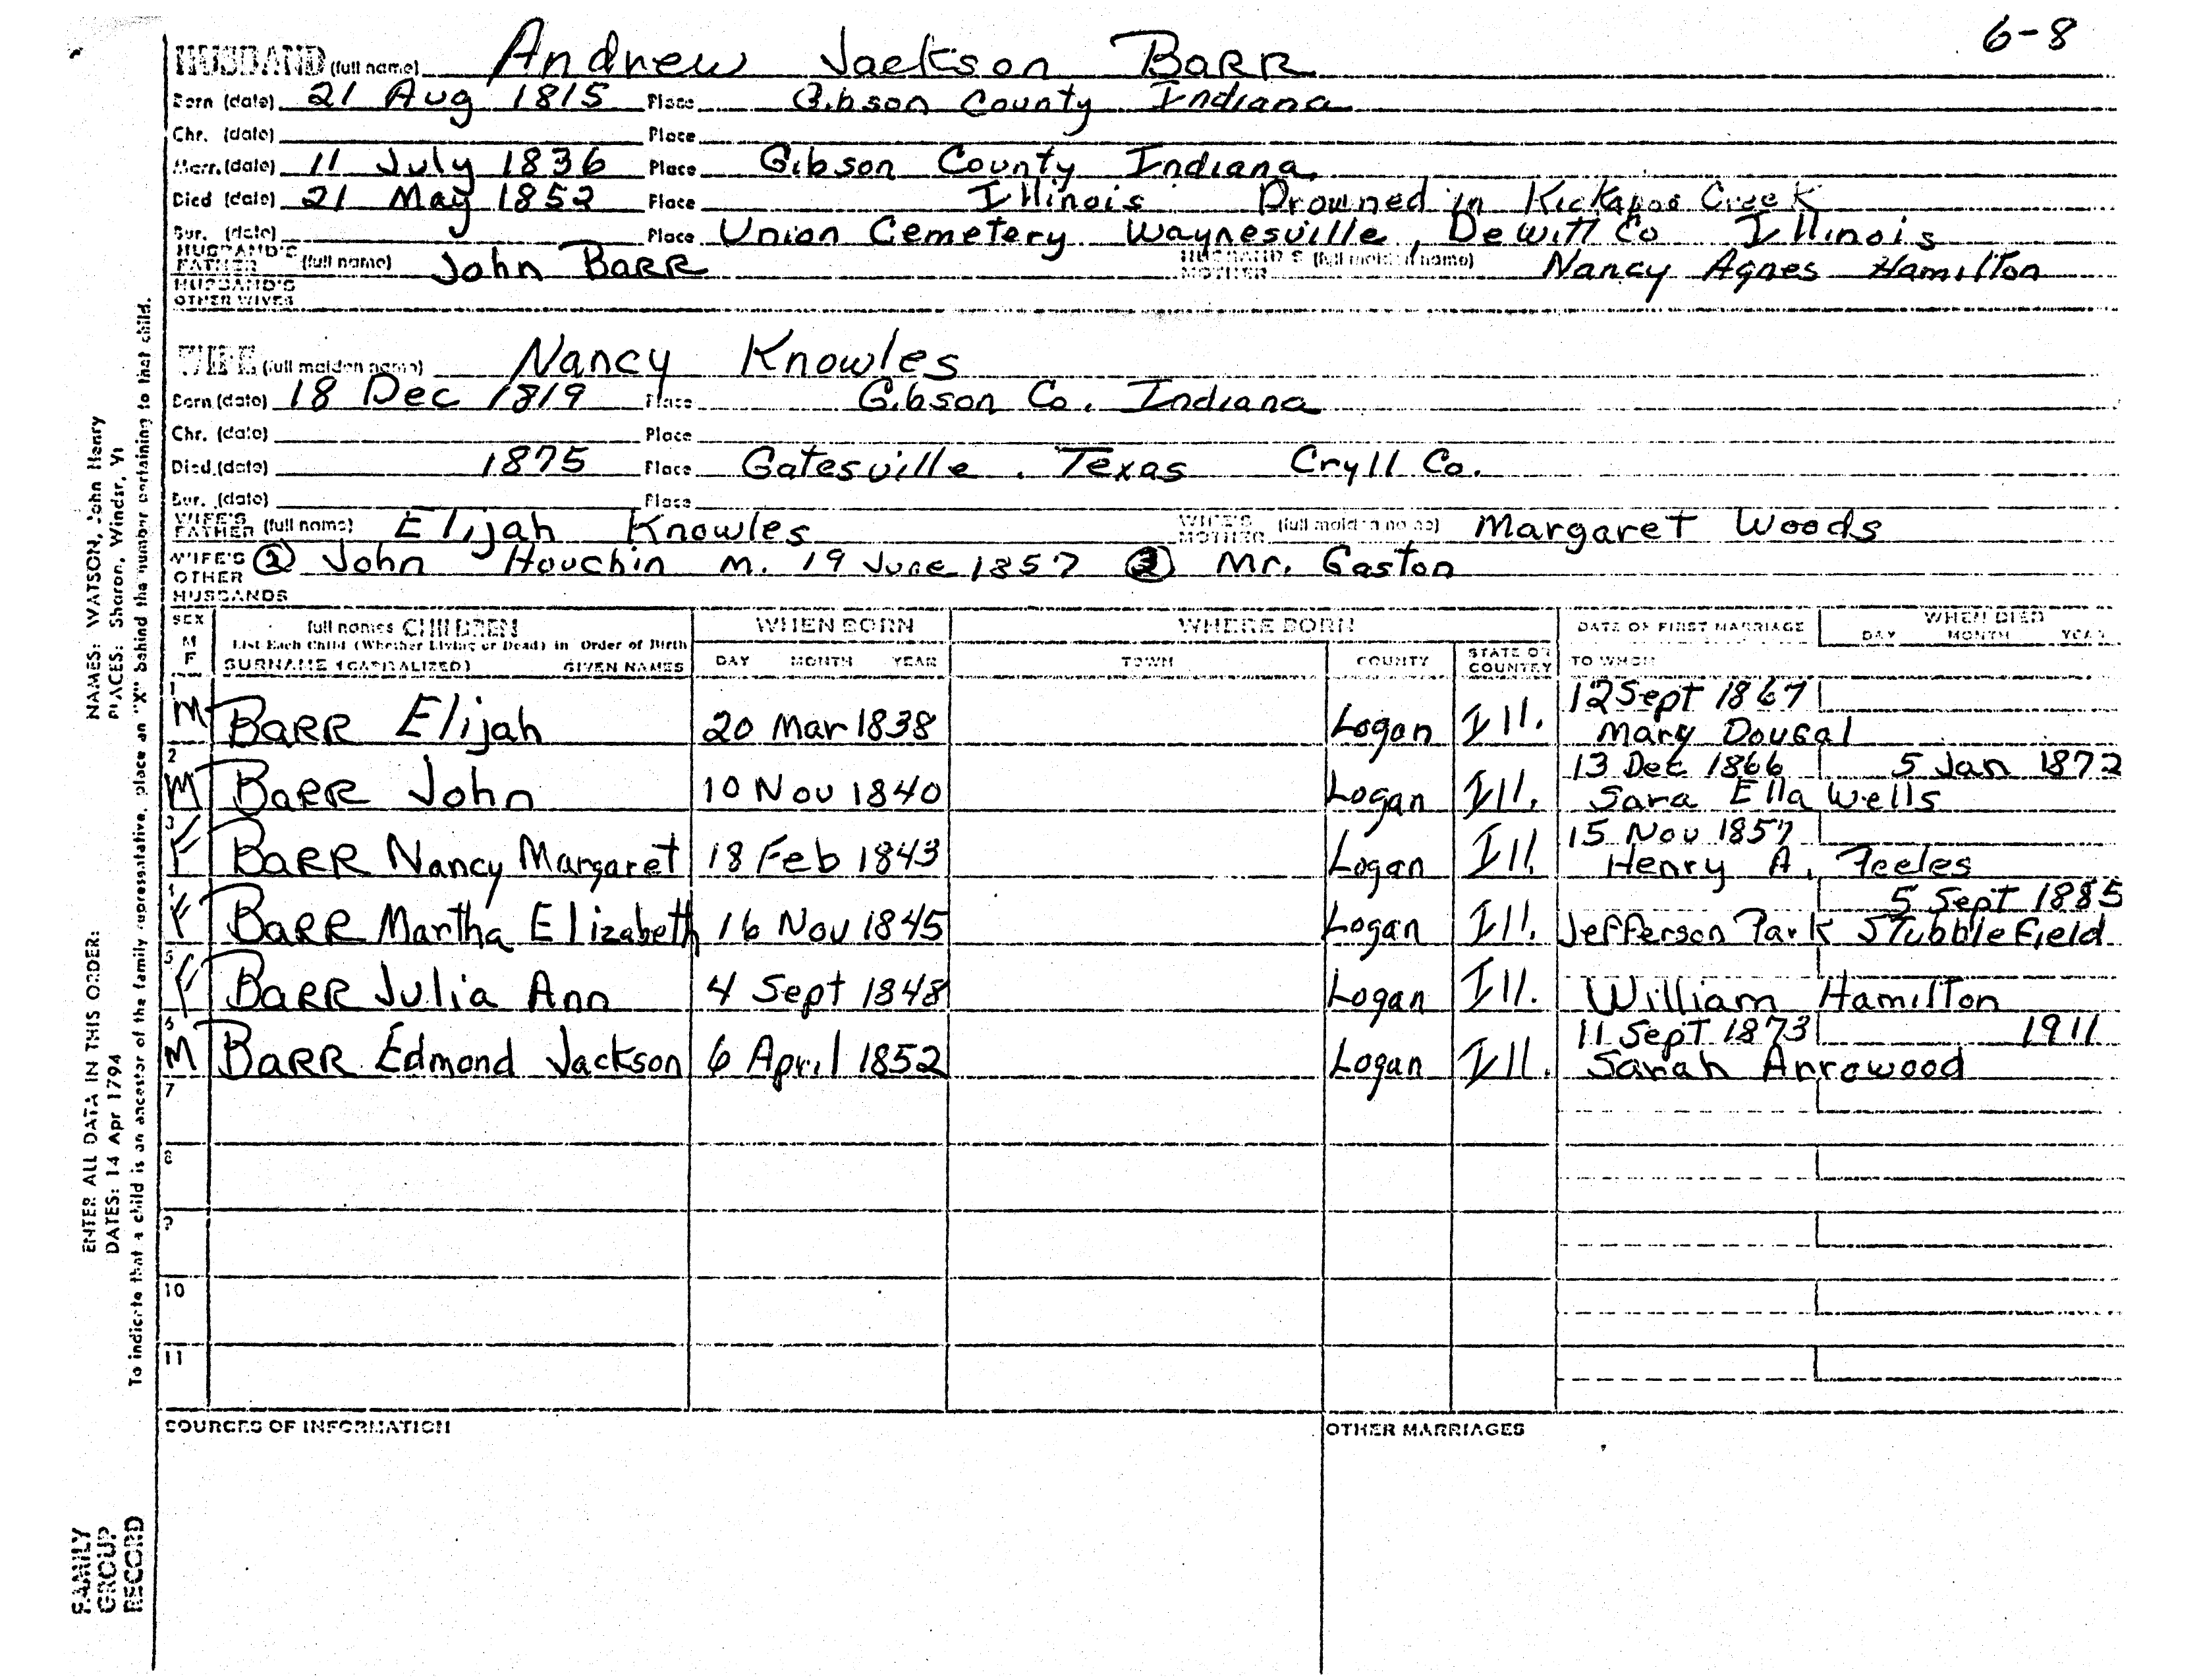 6-8
HUSBAND (full name) Andrew Jackson BARR
Born (date) 21 Aug 1815 Place Gibson County Indiana
Chr. (date) Place
Marr. (date) 11 July 1836 Place Gibson County Indiana
Died (date) 21 May 1852 Place Illinois Drowned in Kickapoo Creek
Bur. (date) Place Union Cemetery Waynesville, DeWitt Co Illinois
HUSBAND'S FATHER (full name) John BARR HUSBAND'S MOTHER (full maiden name) Nancy Agnes Hamilton
HUSBAND'S OTHER WIVES
WIFE (full maiden name) Nancy Knowles
Born (date) 18 Dec 1819 Place Gibson Co. Indiana
Chr. (date) Place
Died (date) 1875 Place Gatesville, Texas Cryll Co.
Bur. (date) Place
WIFE'S FATHER (full name) Elijah Knowles WIFE'S MOTHER (full maiden name) Margaret Woods
WIFE'S OTHER HUSBANDS ② John Houchin m. 19 June 1857 ③ Mr. Gaston
SEX M F full names CHILDREN WHEN BORN WHERE BORN DATE OF FIRST MARRIAGE WHEN DIED
List Each Child (Whether Living or Dead) in Order of Birth DAY MONTH YEAR
SURNAME (CAPITALIZED) GIVEN NAMES DAY MONTH YEAR TOWN COUNTY STATE OR COUNTRY TO WHOM
1 12 Sept 1867
M BARR Elijah 20 Mar 1838 Logan Ill. Mary Dougal
2 13 Dec 1866 5 Jan 1872
M BARR John 10 Nov 1840 Logan Ill. Sara Ella Wells
3 15 Nov 1857
F BARR Nancy Margaret 18 Feb 1843 Logan Ill. Henry A. Feeles
4 5 Sept 1885
F BARR Martha Elizabeth 16 Nov 1845 Logan Ill. Jefferson Park Stubblefield
5
F BARR Julia Ann 4 Sept 1848 Logan Ill. William Hamilton
6 11 Sept 1873 1911
M BARR Edmond Jackson 6 April 1852 Logan Ill. Sarah Arrowood
7
8
9
10
11
SOURCES OF INFORMATION OTHER MARRIAGES
NAMES: WATSON, John Henry
PLACES: Sharon, Windsr, Vt
ENTER ALL DATA IN THIS ORDER:
DATES: 14 Apr 1794
To indicate that a child is an ancestor of the family representative, place an "X" behind the number pertaining to that child.
FAMILY
GROUP
RECORD